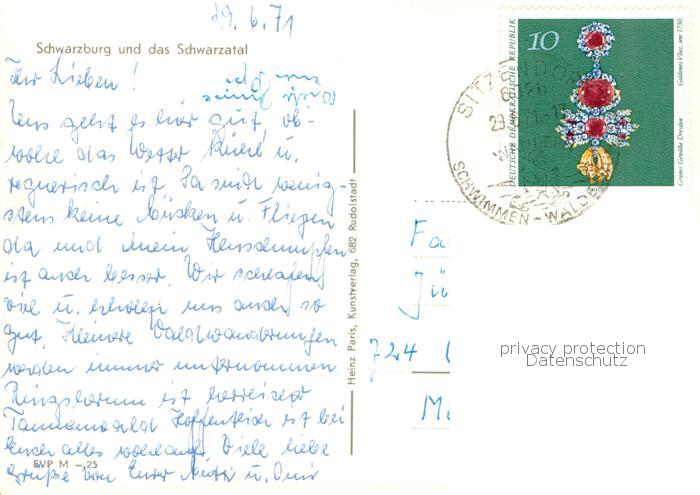 29.6.71
Schwarzburg und das Schwarzatal
Ihr Lieben!
Uns geht es hier gut, ob-
wohl das Wetter kühl u.
regnerisch ist. Da sind wenig-
stens keine Mücken u. Fliegen
da und mein Heuschnupfen
ist auch besser. Wir schlafen
viel u. erholen uns auch so
gut. Kleinere Waldwanderungen
werden immer unternommen.
Ringsherum ist herrlicher
Tannenwald. Hoffentlich ist bei
Euch alles wohlauf. Viele liebe
Grüße von Eurer Mutti u. Omi
und Opi
EVP M -,25
Heinz Paris, Kunstverlag, 682 Rudolstadt
10
DEUTSCHE DEMOKRATISCHE REPUBLIK
Goldenes Vlies, um 1750
Grünes Gewölbe Dresden
SITZENDORF
SCHWIMMEN - WALD
Fa
Jü
724
M
privacy protection
Datenschutz